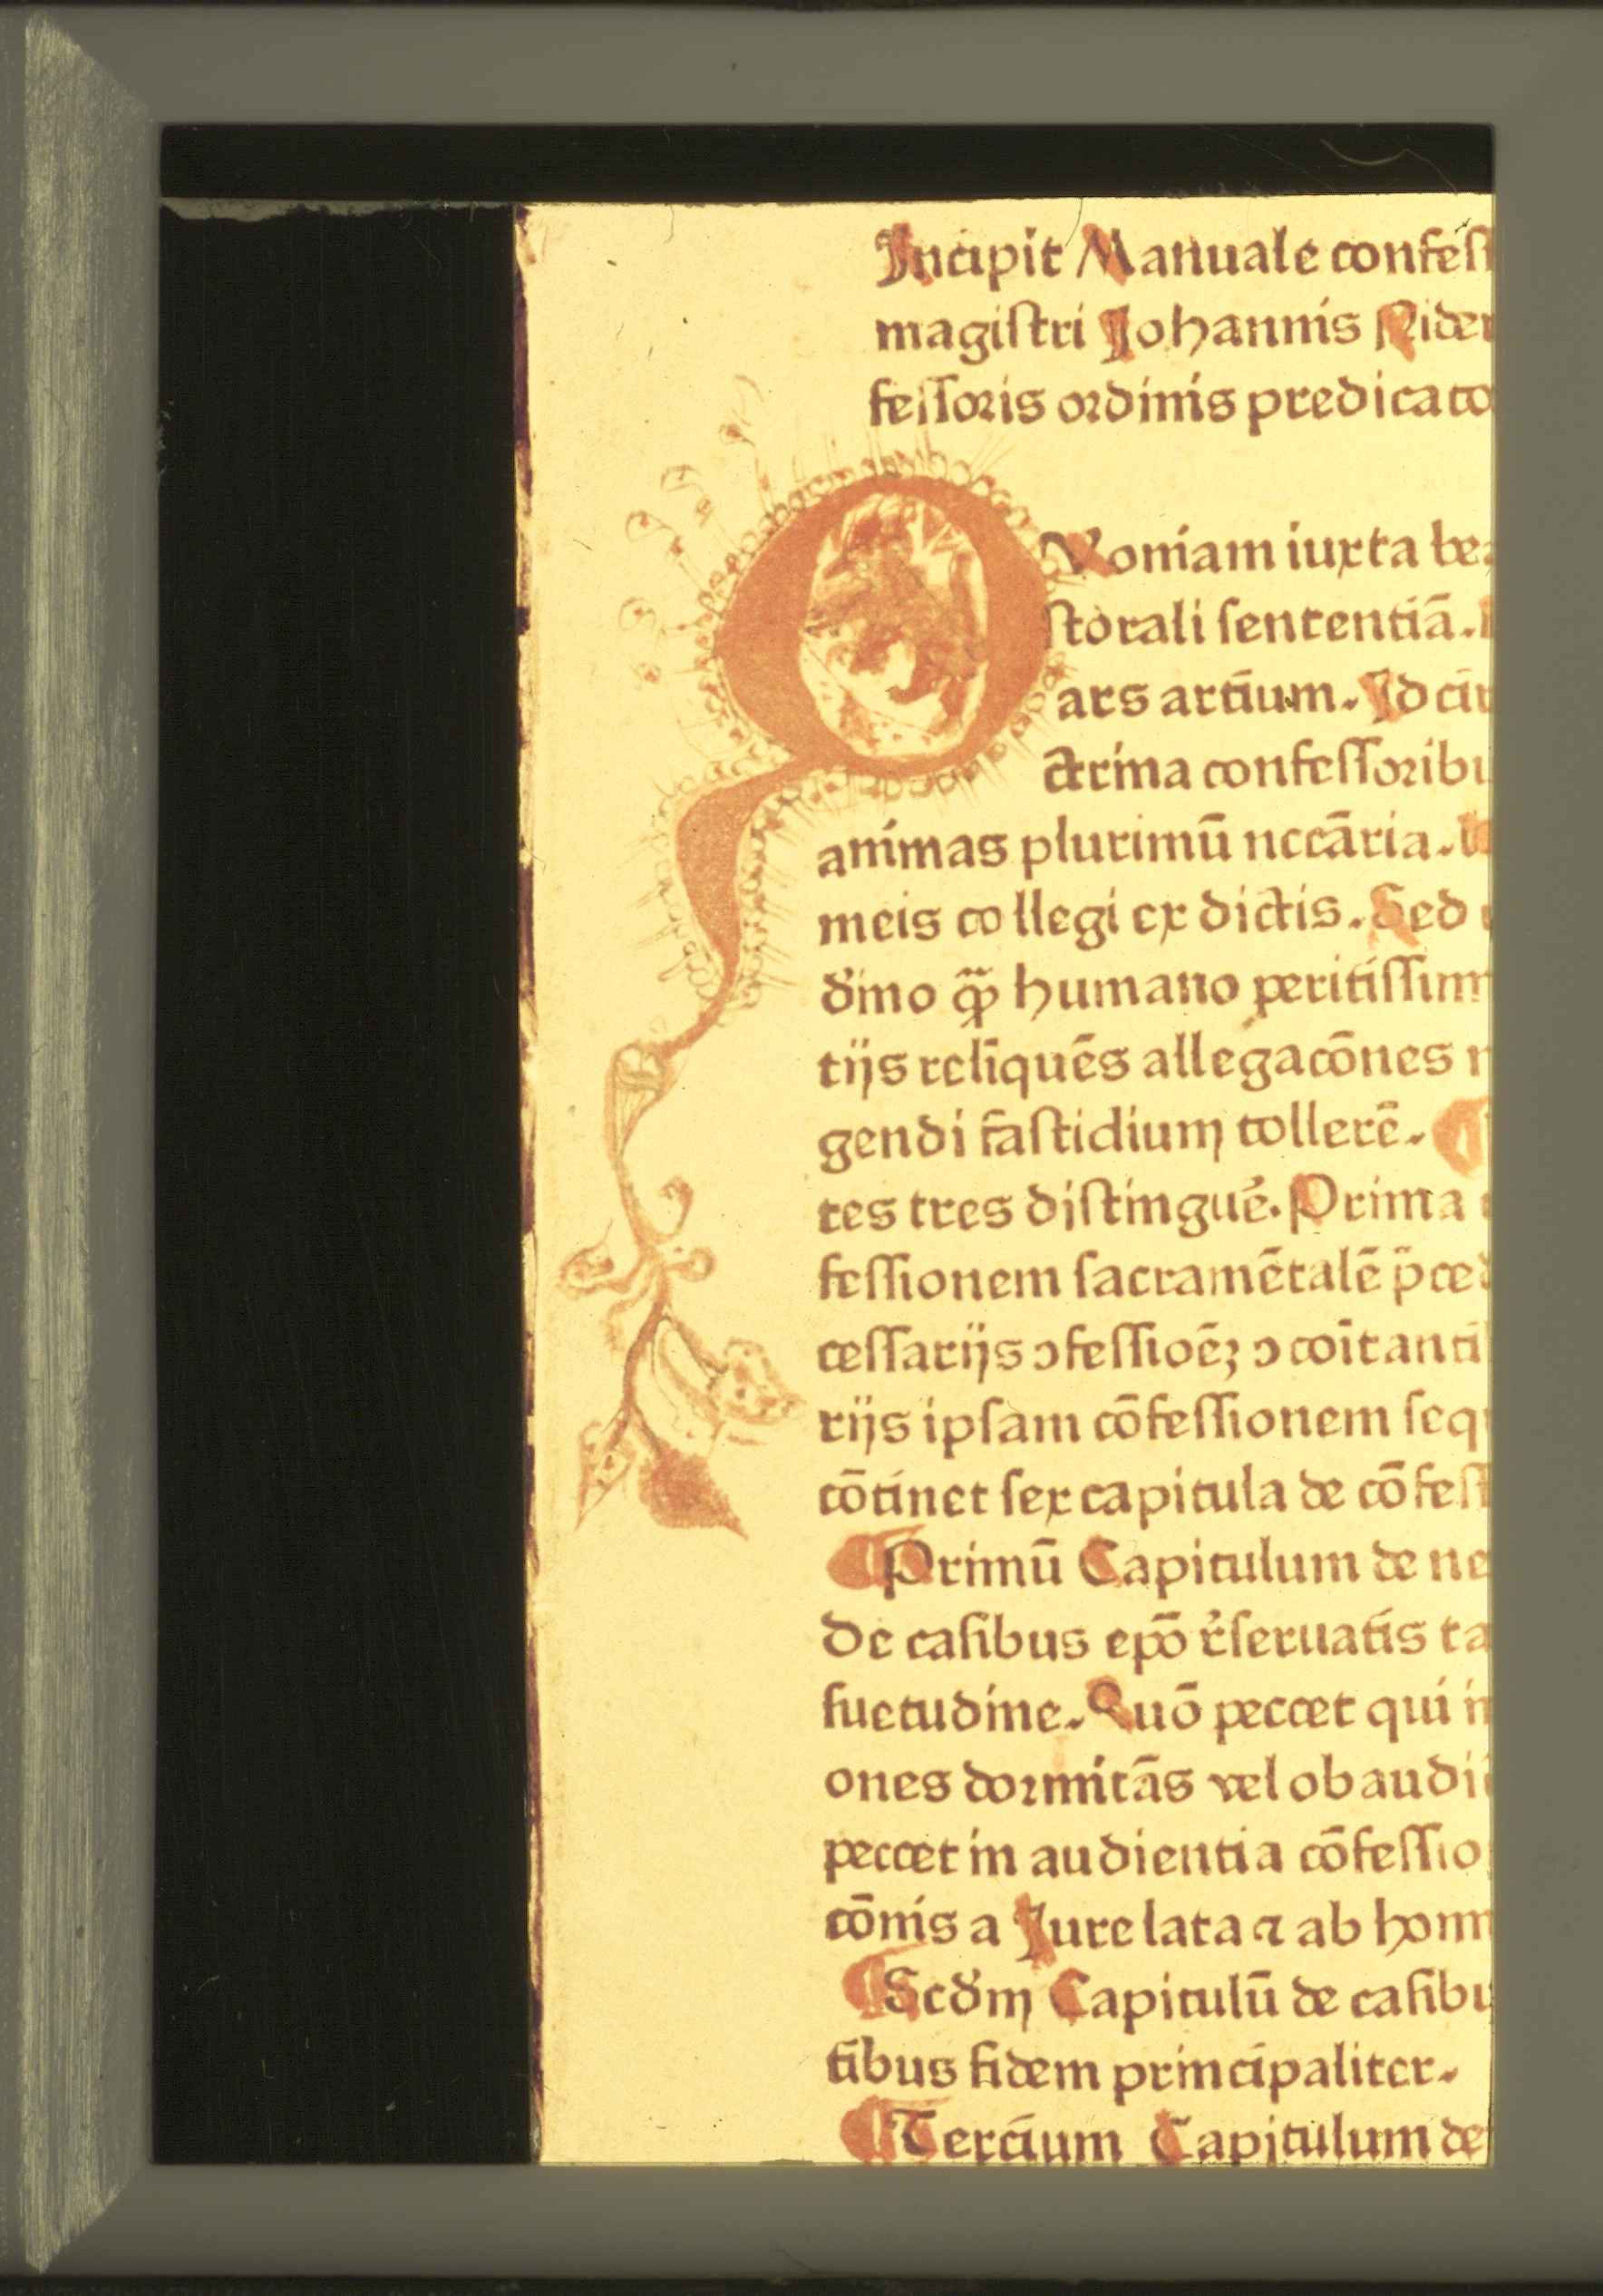 Incipit Manuale confess
magistri Johannis Nider
fessoris ordinis predicato
QVoniam iuxta bea
storali sententiā.
ars artium. Idcir
ctrina confessoribu
animas plurimū nccāria.
meis collegi ex dictis. Sed
d'ino qᷓꝫ humano peritissim
tijs reliquēs allegacōnes
gendi fastidium tollerē. ¶
tes tres distinguē. Prima
fessionem sacramētalē p̄ced
cessarijs ɔfessioēꝫ ɔcoītanti
rijs ipsam cōfessionem sequ
cōtinet sex capitula de cōfess
¶ Primū Capitulum de ne
De casibus epō r̄seruatis ta
suetudine. Quō peccet qui in
ones dormitās vel obaudi
peccet in audientia cōfessio
cōnis a Jure lata ⁊ ab hom
¶ Scd'm Capitulū de casibu
tibus fidem principaliter.
¶ Tercium Capitulum de